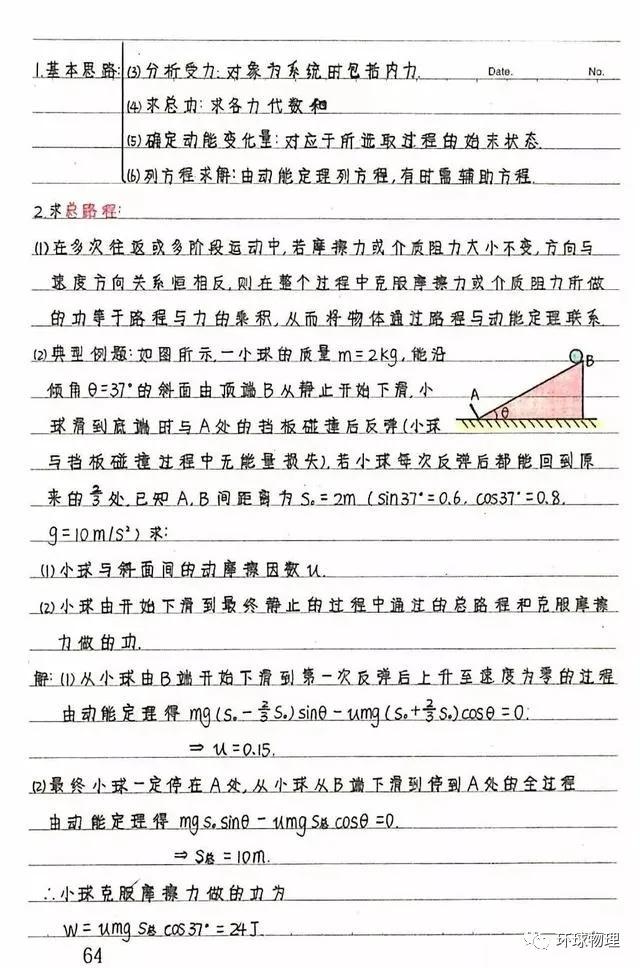 1.基本思路: (3)分析受力: 对象为系统时包括内力. Date. No.
(4)求总功: 求各力代数和
(5)确定动能变化量: 对应于所选取过程的始末状态.
(6)列方程求解: 由动能定理列方程, 有时需辅助方程.
2.求总路程:
(1)在多次往返或多阶段运动中, 若摩擦力或介质阻力大小不变, 方向与
速度方向关系恒相反, 则在整个过程中克服摩擦力或介质阻力所做
的功等于路程与力的乘积, 从而将物体通过路程与动能定理联系.
(2)典型例题: 如图所示, 一小球的质量m=2kg, 能沿
倾角θ=37°的斜面由顶端B从静止开始下滑, 小
球滑到底端时与A处的挡板碰撞后反弹(小球
与挡板碰撞过程中无能量损失), 若小球每次反弹后都能回到原
来的2/3处, 已知A, B间距离为S₀=2m (sin37°=0.6, cos37°=0.8,
g=10m/s²) 求:
B
A
θ
(1)小球与斜面间的动摩擦因数u.
(2)小球由开始下滑到最终静止的过程中通过的总路程和克服摩擦
力做的功.
解: (1)从小球由B端开始下滑到第一次反弹后上升至速度为零的过程
由动能定理得 mg(S₀-2/3S₀)sinθ-umg(S₀+2/3S₀)cosθ=0.
⇒ u=0.15.
(2)最终小球一定停在A处, 从小球从B端下滑到停到A处的全过程
由动能定理得 mgS₀sinθ-umgS总cosθ=0.
⇒ S总=10m.
∴小球克服摩擦力做的功为
W=umgS总cos37°=24J
64
环球物理